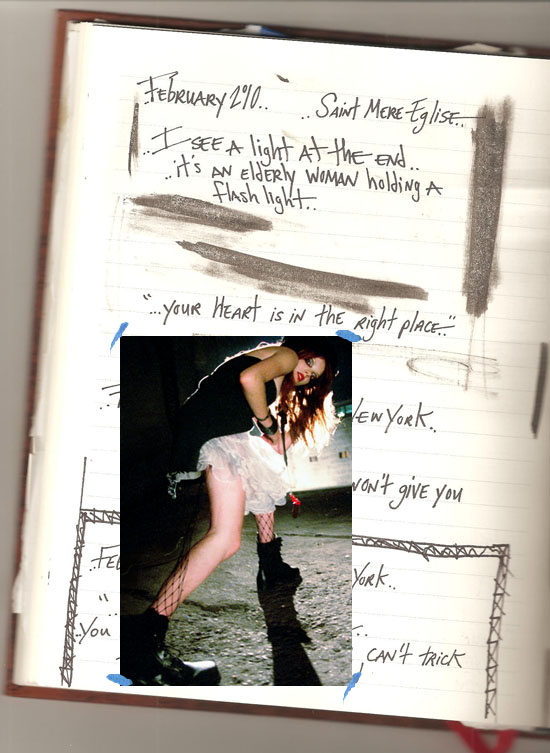 FEBRUARY 2010.. ..SAINT MERE-EGLISE..
..I SEE A light At the END..
..it's AN elderly WOMAN holding A
flash light..
"...YOUR HEART IS IN the right place..."
NEW YORK.
WON't give you
..FE YORK..
"..
..YOU CAN't tRICK